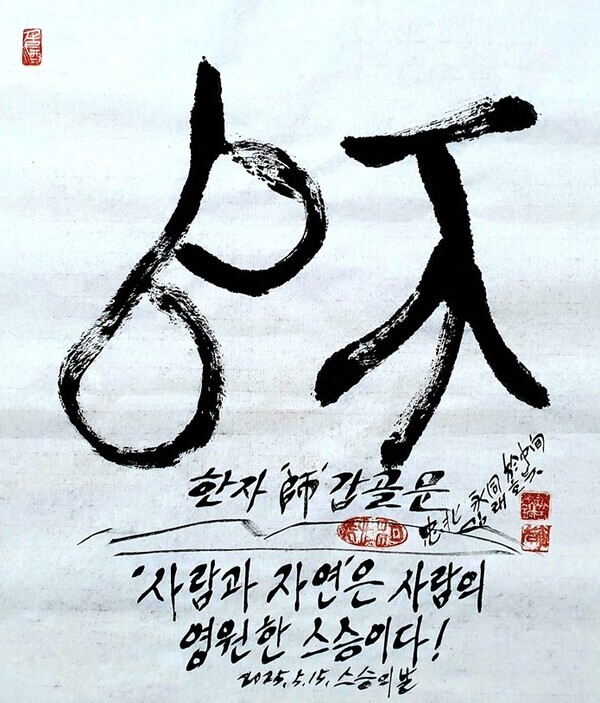 한자 '師' 갑골문
'사람과 자연'은 사람의
영원한 스승이다!
2025.5.15. 스승의 날
忠北 永同